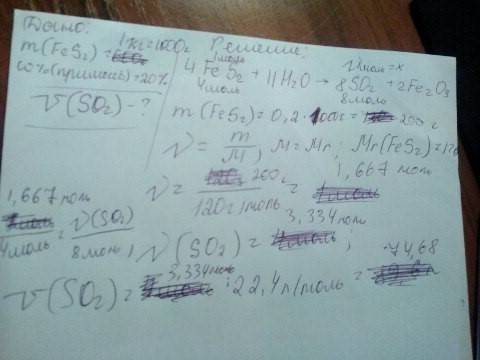 Дано:
m(FeS₂) = 1кг = 1000г
ω%(примась) = 20%
V(SO₂) - ?
Решение:
1,667 моль V мол = x
4FeS₂ + 11H₂O → 8SO₂ + 2Fe₂O₃
4моль 8моль
m(FeS₂) = 0,2 · 1000г = 200 г
ν = m/M, M = Mr; Mr(FeS₂) = 120
ν = 200г / 120г/моль = 1,667 моль
1,667 моль / 4моль = ν(SO₂) / 8моль, ν(SO₂) = 3,334моль;
V(SO₂) = 3,334моль · 22,4л/моль = 74,68